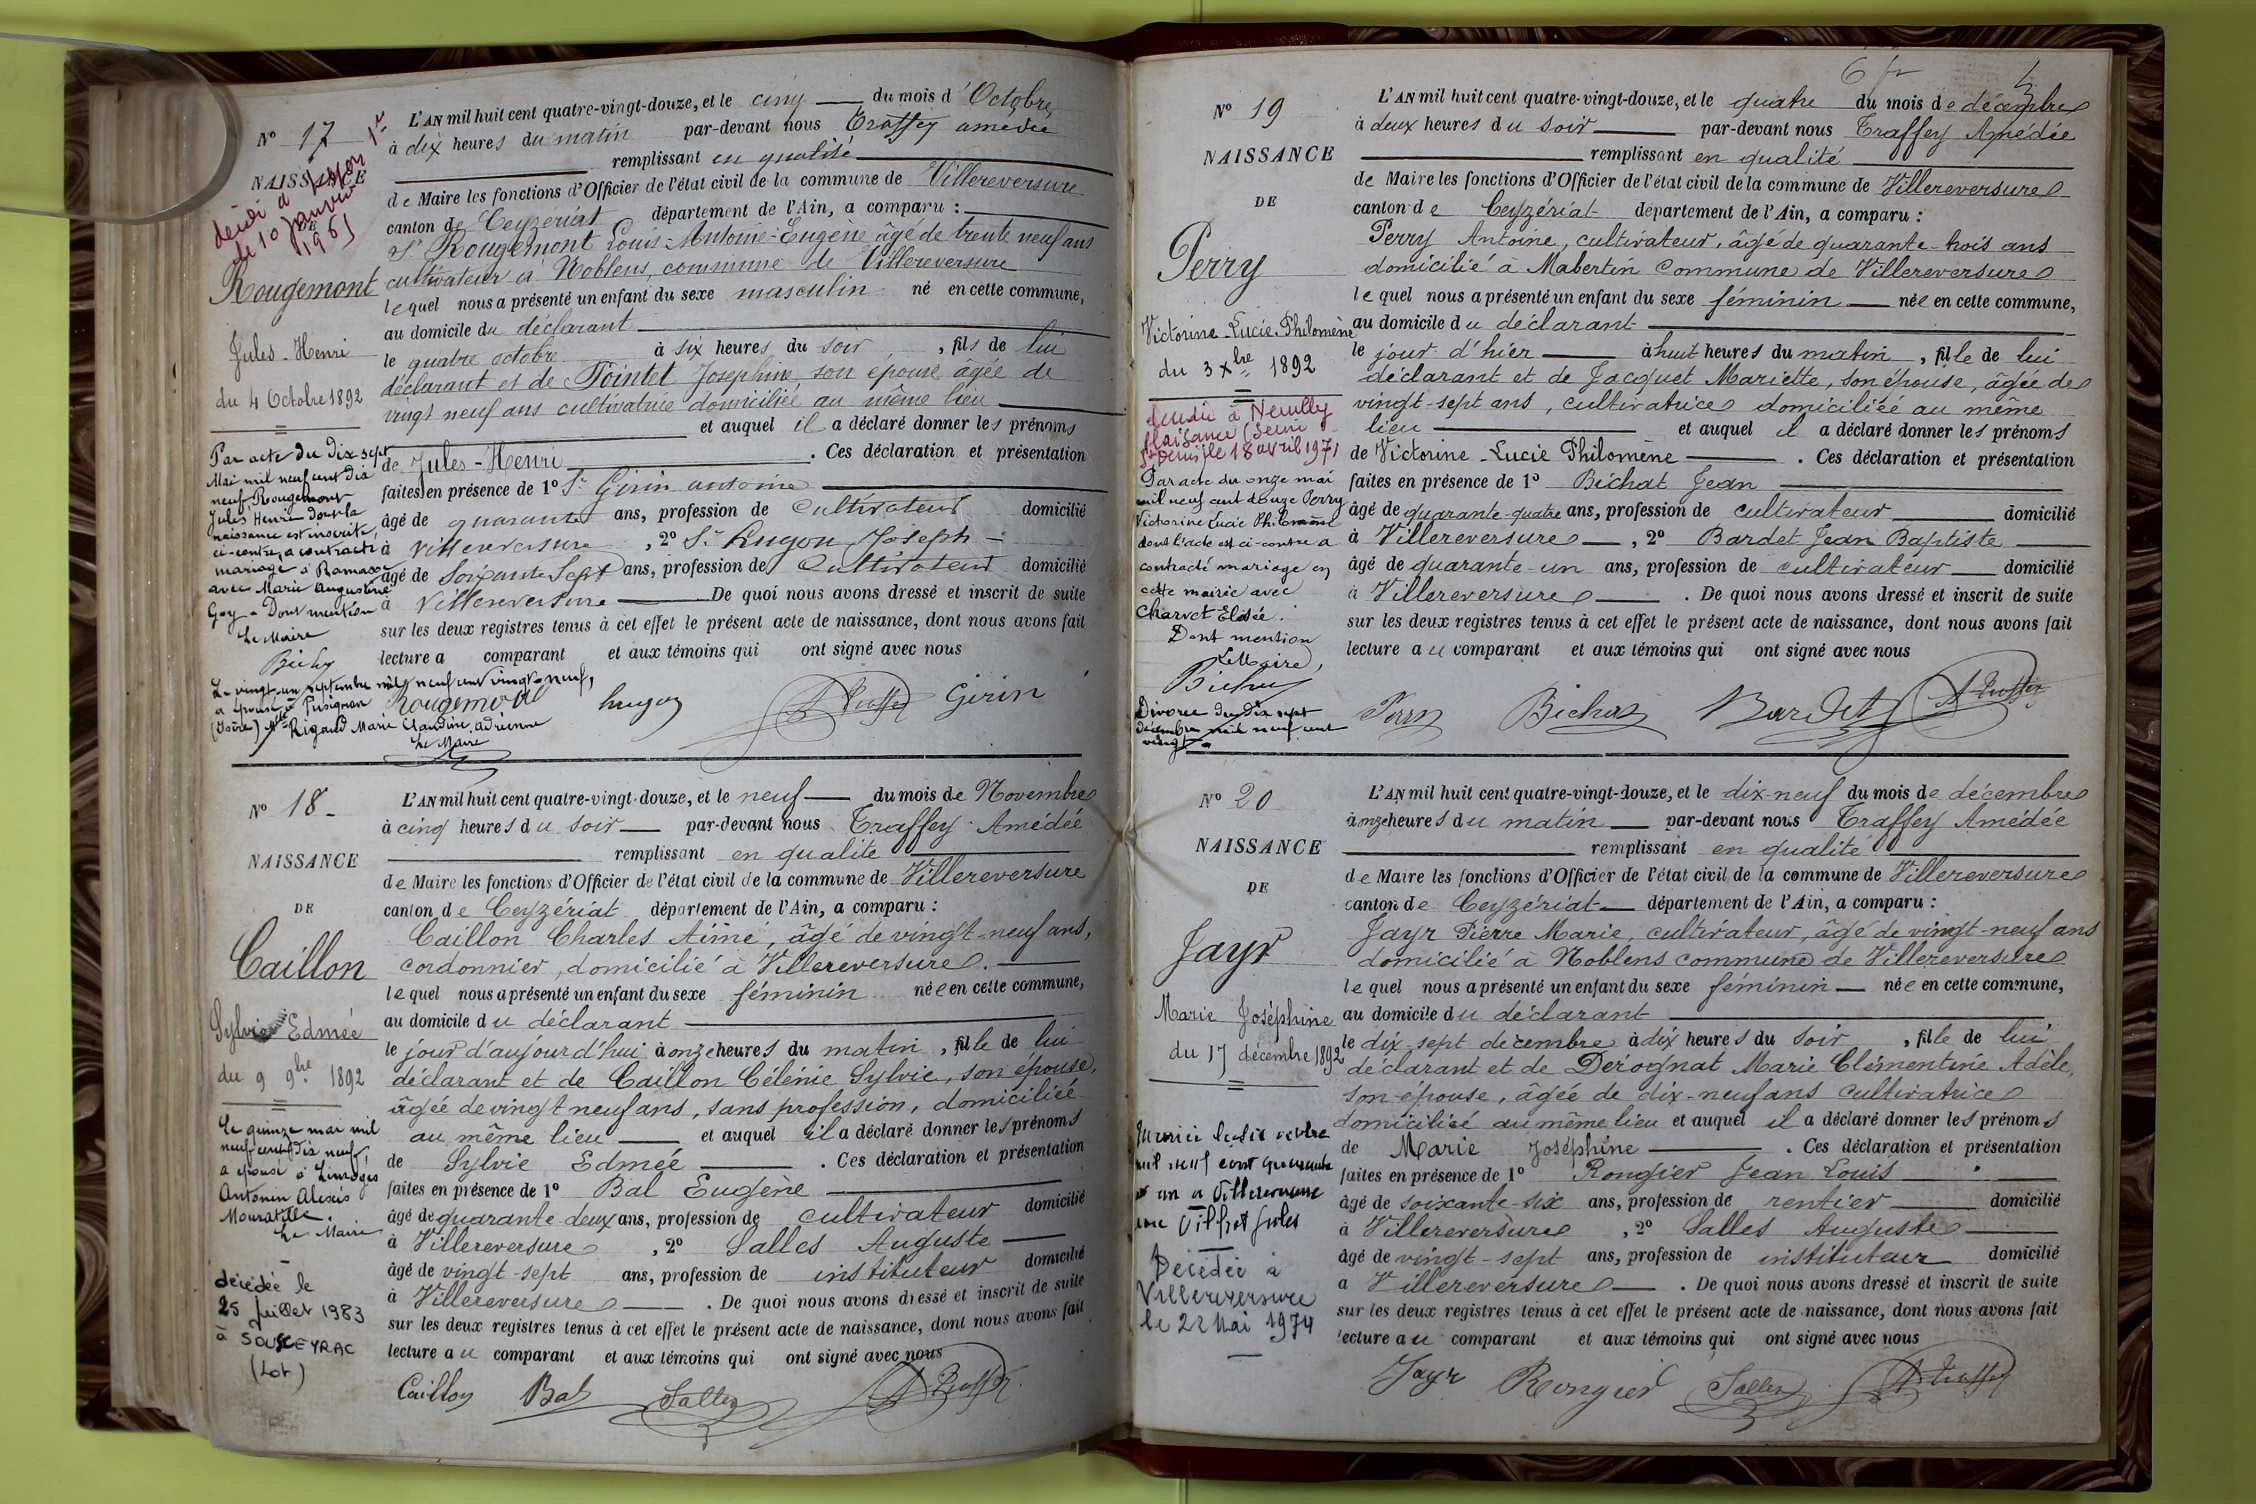 N° 17
NAISSANCE
DE
Rougemont
Jules-Henri
du 4 Octobre 1892
décédé à Lyon 1er
le 10 janvier
1965
Par acte du Dix sept
Mai mil neuf cent dix
neuf Rougemont
Jules Henri dont la
naissance est inscrite
ci-contre, a contracté
mariage à Ramasse
avec Marie Augustine
Goy - Dont mention
Le Maire
Le vingt-un septembre mil neuf cent vingt-neuf,
a épousé à Pusignan
(Isère) Mlle Rigaud Marie Claudine Adrienne
Le Maire
L'AN mil huit cent quatre-vingt-douze, et le cinq du mois d'Octobre,
à dix heures du matin par-devant nous Traffey amédée
remplissant en qualité
de Maire les fonctions d'Officier de l'état civil de la commune de Villereversure
canton de Ceyzériat département de l'Ain, a comparu :
Sr Rougemont Louis-Antoine-Eugène âgé de trente neuf ans
cultivateur à Noblens, commune de Villereversure
lequel nous a présenté un enfant du sexe masculin né en cette commune,
au domicile du déclarant
le quatre octobre à six heures du soir, fils de lui
déclarant et de Pointet Joséphine son épouse âgée de
vingt neuf ans cultivatrice domiciliée au même lieu
et auquel il a déclaré donner les prénoms
de Jules-Henri . Ces déclaration et présentation
faites en présence de 1° Sr Girin antoine
âgé de quarante ans, profession de Cultivateur domicilié
à Villereversure, 2° Sr Lugon Joseph
âgé de Soixante Sept ans, profession de Cultivateur domicilié
à Villereversure De quoi nous avons dressé et inscrit de suite
sur les deux registres tenus à cet effet le présent acte de naissance, dont nous avons fait
lecture a comparant et aux témoins qui ont signé avec nous
Rougemont Lugon A Traffey Girin
N° 18
NAISSANCE
DE
Caillon
Sylvie Edmée
du 9 9bre 1892
Le quinze mai mil
neuf cent dix neuf,
a épousé à Limoges
Antonin Alexis
Mouratille.
Le Maire
décédée le
25 Juillet 1983
à SOUSCEYRAC
(Lot)
L'AN mil huit cent quatre-vingt-douze, et le neuf du mois de Novembre
à cinq heures du soir par-devant nous Traffey Amédée
remplissant en qualité
de Maire les fonctions d'Officier de l'état civil de la commune de Villereversure
canton de Ceyzériat département de l'Ain, a comparu :
Caillon Charles Aimé, âgé de vingt-neuf ans,
cordonnier, domicilié à Villereversure.
lequel nous a présenté un enfant du sexe féminin née en cette commune,
au domicile du déclarant
le jour d'aujourd'hui à onze heures du matin, fille de lui
déclarant et de Caillon Célénie Sylvie, son épouse,
âgée de vingt neuf ans, sans profession, domiciliée
au même lieu et auquel il a déclaré donner les prénoms
de Sylvie Edmée . Ces déclaration et présentation
faites en présence de 1° Bal Eugène
âgé de quarante deux ans, profession de cultivateur domicilié
à Villereversure, 2° Salles Auguste
âgé de vingt-sept ans, profession de instituteur domicilié
à Villereversure . De quoi nous avons dressé et inscrit de suite
sur les deux registres tenus à cet effet le présent acte de naissance, dont nous avons fait
lecture au comparant et aux témoins qui ont signé avec nous
Caillon Bal Salles A Traffey
N° 19
NAISSANCE
DE
Perry
Victorine-Lucie-Philomène
du 3 Xbre 1892
décédée à Neuilly
Plaisance (Seine
St Denis) le 18 avril 1971
Par acte du onze mai
mil neuf cent douze Perry
Victorine Lucie Philomène
dont l'acte est ci-contre a
contracté mariage en
cette mairie avec
Charvet Elisée.
Dont mention
Le Maire,
Divorce du dix sept
décembre mil neuf cent
vingt
L'AN mil huit cent quatre-vingt-douze, et le quatre du mois de décembre
à deux heures du soir par-devant nous Traffey Amédée
remplissant en qualité
de Maire les fonctions d'Officier de l'état civil de la commune de Villereversure
canton de Ceyzériat département de l'Ain, a comparu :
Perry Antoine, cultivateur, âgé de quarante-trois ans
domicilié à Mabertin commune de Villereversure
lequel nous a présenté un enfant du sexe féminin née en cette commune,
au domicile du déclarant
le jour d'hier à huit heures du matin, fille de lui
déclarant et de Jacquet Mariette, son épouse, âgée de
vingt-sept ans, cultivatrice domiciliée au même
lieu et auquel il a déclaré donner les prénoms
de Victorine-Lucie Philomène . Ces déclaration et présentation
faites en présence de 1° Bichat Jean
âgé de quarante-quatre ans, profession de cultivateur domicilié
à Villereversure, 2° Bardet Jean Baptiste
âgé de quarante-un ans, profession de cultivateur domicilié
à Villereversure . De quoi nous avons dressé et inscrit de suite
sur les deux registres tenus à cet effet le présent acte de naissance, dont nous avons fait
lecture au comparant et aux témoins qui ont signé avec nous
Perry Bichat Bardet A Traffey
N° 20
NAISSANCE
DE
Jayr
Marie Joséphine
du 17 décembre 1892
mil neuf cent quarante
un à Villereversure
Décédée à
Villereversure
le 22 Mai 1974
L'AN mil huit cent quatre-vingt-douze, et le dix-neuf du mois de décembre
à onze heures du matin par-devant nous Traffey Amédée
remplissant en qualité
de Maire les fonctions d'Officier de l'état civil de la commune de Villereversure
canton de Ceyzériat département de l'Ain, a comparu :
Jayr Pierre Marie, cultivateur, âgé de vingt-neuf ans
domicilié à Noblens commune de Villereversure
lequel nous a présenté un enfant du sexe féminin née en cette commune,
au domicile du déclarant
le dix-sept décembre à dix heures du soir, fille de lui
déclarant et de Dérognat Marie Clémentine Adèle,
son épouse, âgée de dix-neuf ans cultivatrice
domiciliée au même lieu et auquel il a déclaré donner les prénoms
de Marie Joséphine . Ces déclaration et présentation
faites en présence de 1° Rongier Jean Louis
âgé de soixante-six ans, profession de rentier domicilié
à Villereversure, 2° Salles Auguste
âgé de vingt-sept ans, profession de instituteur domicilié
à Villereversure . De quoi nous avons dressé et inscrit de suite
sur les deux registres tenus à cet effet le présent acte de naissance, dont nous avons fait
lecture au comparant et aux témoins qui ont signé avec nous
Jayr Rongier Salles A Traffey